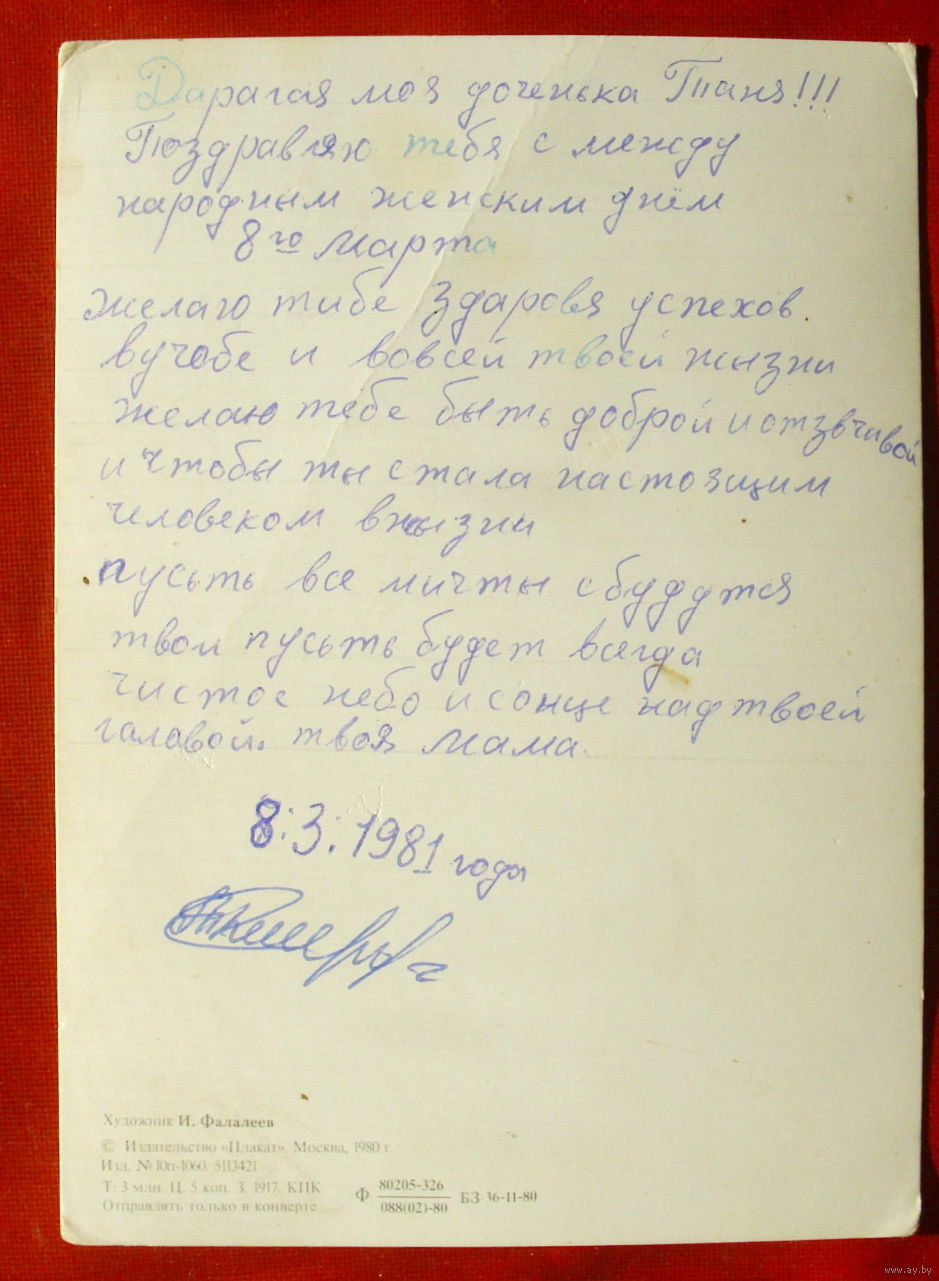 Дарагая моя доченька Таня!!!
Поздравляю тебя с между
народным женским днём
8го Марта
желаю тибе здаровя успехов.
вучебе и вовсей твоей жизни
желаю тебе быть доброй и отзвчивой
и чтобы ты стала настоящим
человеком вжызни
пусьть все мичты сбудутся
твои пусьть будет всегда
чистое небо и сонце над твоей
галавой. твоя Мама.
8.3.1981 года
Художник И. Фалалеев
© Издательство «Плакат». Москва, 1980 г.
Изд. № 10п-1060. 5113421
Т. 3 млн. Ц. 5 коп. З. 1917. КПК
Отправлять только в конверте
Ф 80205-326 БЗ-36-11-80
088(02)-80
www.ay.by